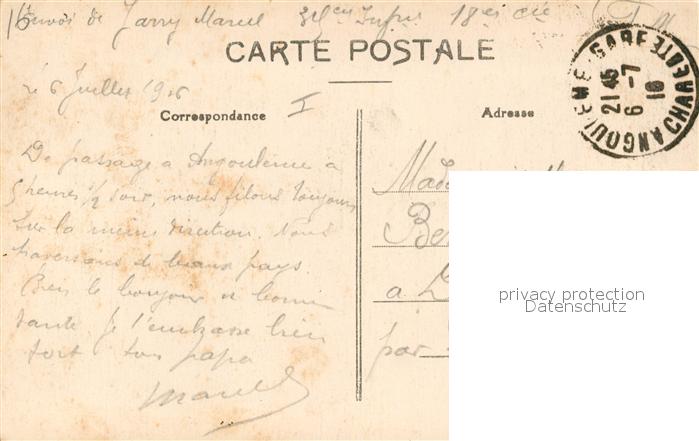 Envoi de Jarry Marcel 18e Cie F.M
CARTE POSTALE
Le 6 Juillet 1916
Correspondance
I
De passage a Angoulême a
5 heures 1/2 soir, nous filons toujours
sur la meme direction. Nous
traversons de beaux pays.
Bien le bonjour et bonne
santé. Je t'embrasse bien
fort ton papa
Marcel
Adresse
Mad
Be
a
par
ANGOULEME GARE
21 45
6 - 7
16
CHARENTE
privacy protection
Datenschutz